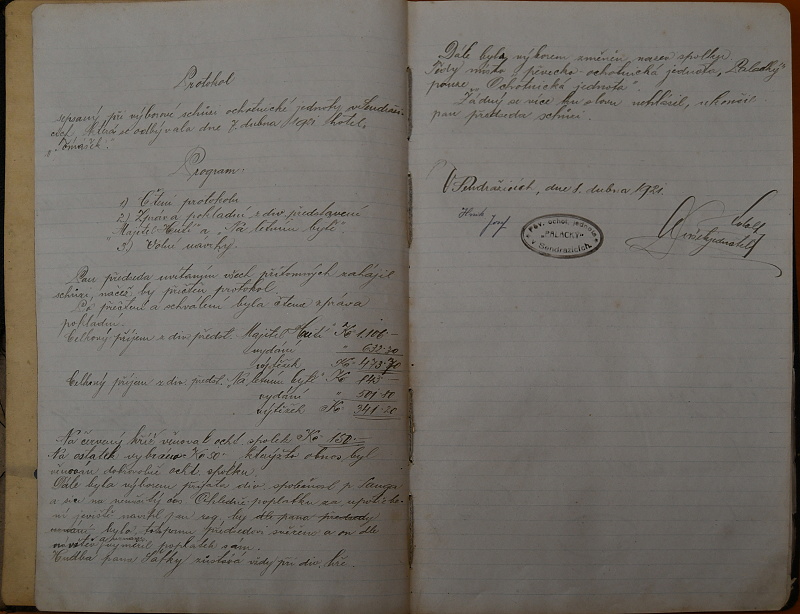 Protokol
sepsaný při výborové schůzi ochotnické jednoty v Sendraži-
cích, která se odbývala dne 7. dubna 1921 hôtel.
„Tomášek".
Program:
1) Čtení protokolu
2) Zpráva pokladní z div. představení
Majitel hutí" a „Na letním bytě"
3) Volné návrhy.
Pan předseda uvítáním všech přítomných zahájil
schůzi, načež byl přečten protokol.
Po přečtení a schválení byla čtena zpráva
pokladní.
Celkový příjem z div. předst. Majitel Hutí" Kč 1.106·-
vydání " 632·30
výtěžek Kč 473·70
Celkový příjem z div. předst. „Na letním bytě" Kč
vydání "
výtěžek Kč 341·20
Na červený kříž věnoval ocht. spolek Kč 150·-
Na ostatek vybráno Kč 50·- kterýžto obnos byl
věnován dobrovolně ocht. spolku.
Dále byla výborem přijata div. společnost p.
a sice na neurčitý čas. Ohledně poplatku za
ní jeviště navrhl pan reg. by dle pana předsedy
bylo panu předsedovi svěřeno a on dle
vyměřil poplatek sám.
Hudba pana zůstává vždy při div. hře.
Dále byl výborem změněn název spolku
Tedy místo pěvecko ochotnická jednota „Palacký"
pouze „Ochotnická jednota".
Žádný se více ku slovu nehlásil, ukončil
pan předseda schůzi.
V Sendražicích, dne 8. dubna 1921.
Josef
Pěv. ochot. jednota
„PALACKÝ"
v Sendražicích.